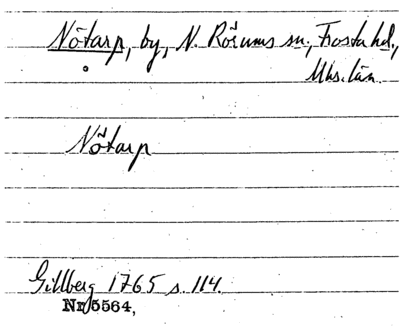 Nötarp, by, N. Rörums sn, Frosta hd.,
Mhs. län
Nötarp
Gillberg 1765 s. 114.
Nr 5564,